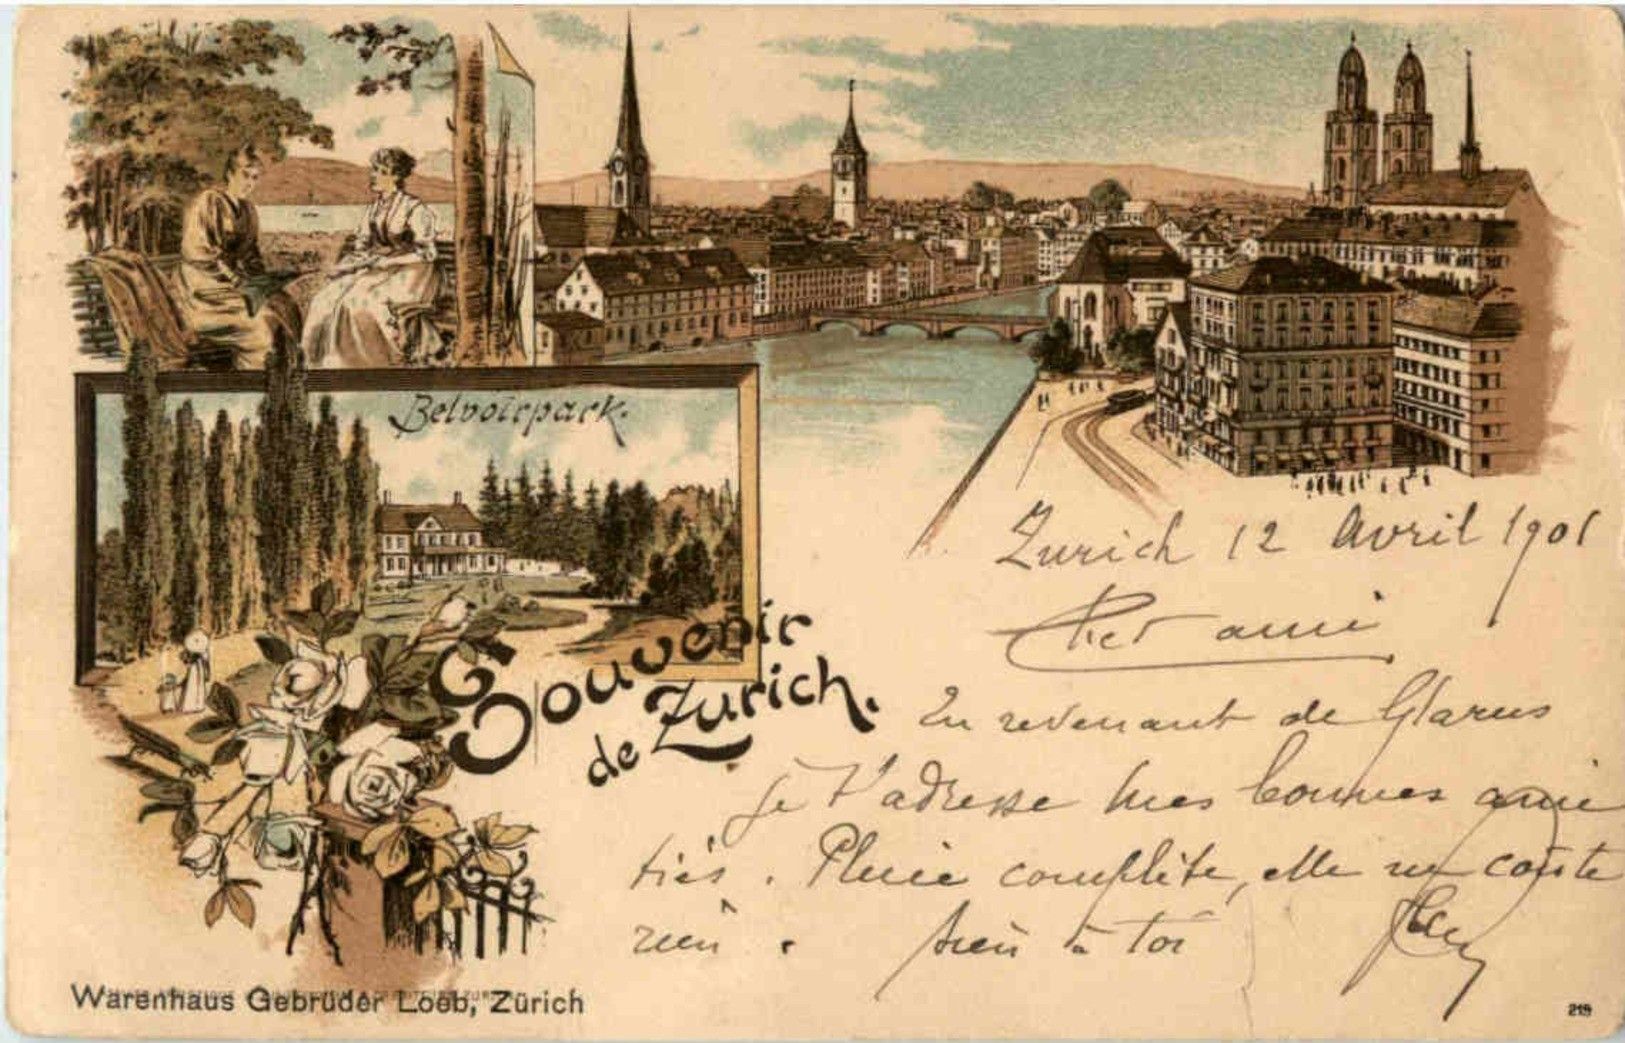 Belvoirpark.
Souvenir
de Zurich.
Zurich 12 Avril 1901
Cher ami
En revenant de Glarus
je t'adresse mes bonnes amie
tiés. Pluie complète, elle ne coûte
rien. bien à toi
Warenhaus Gebrüder Loeb, Zürich
219